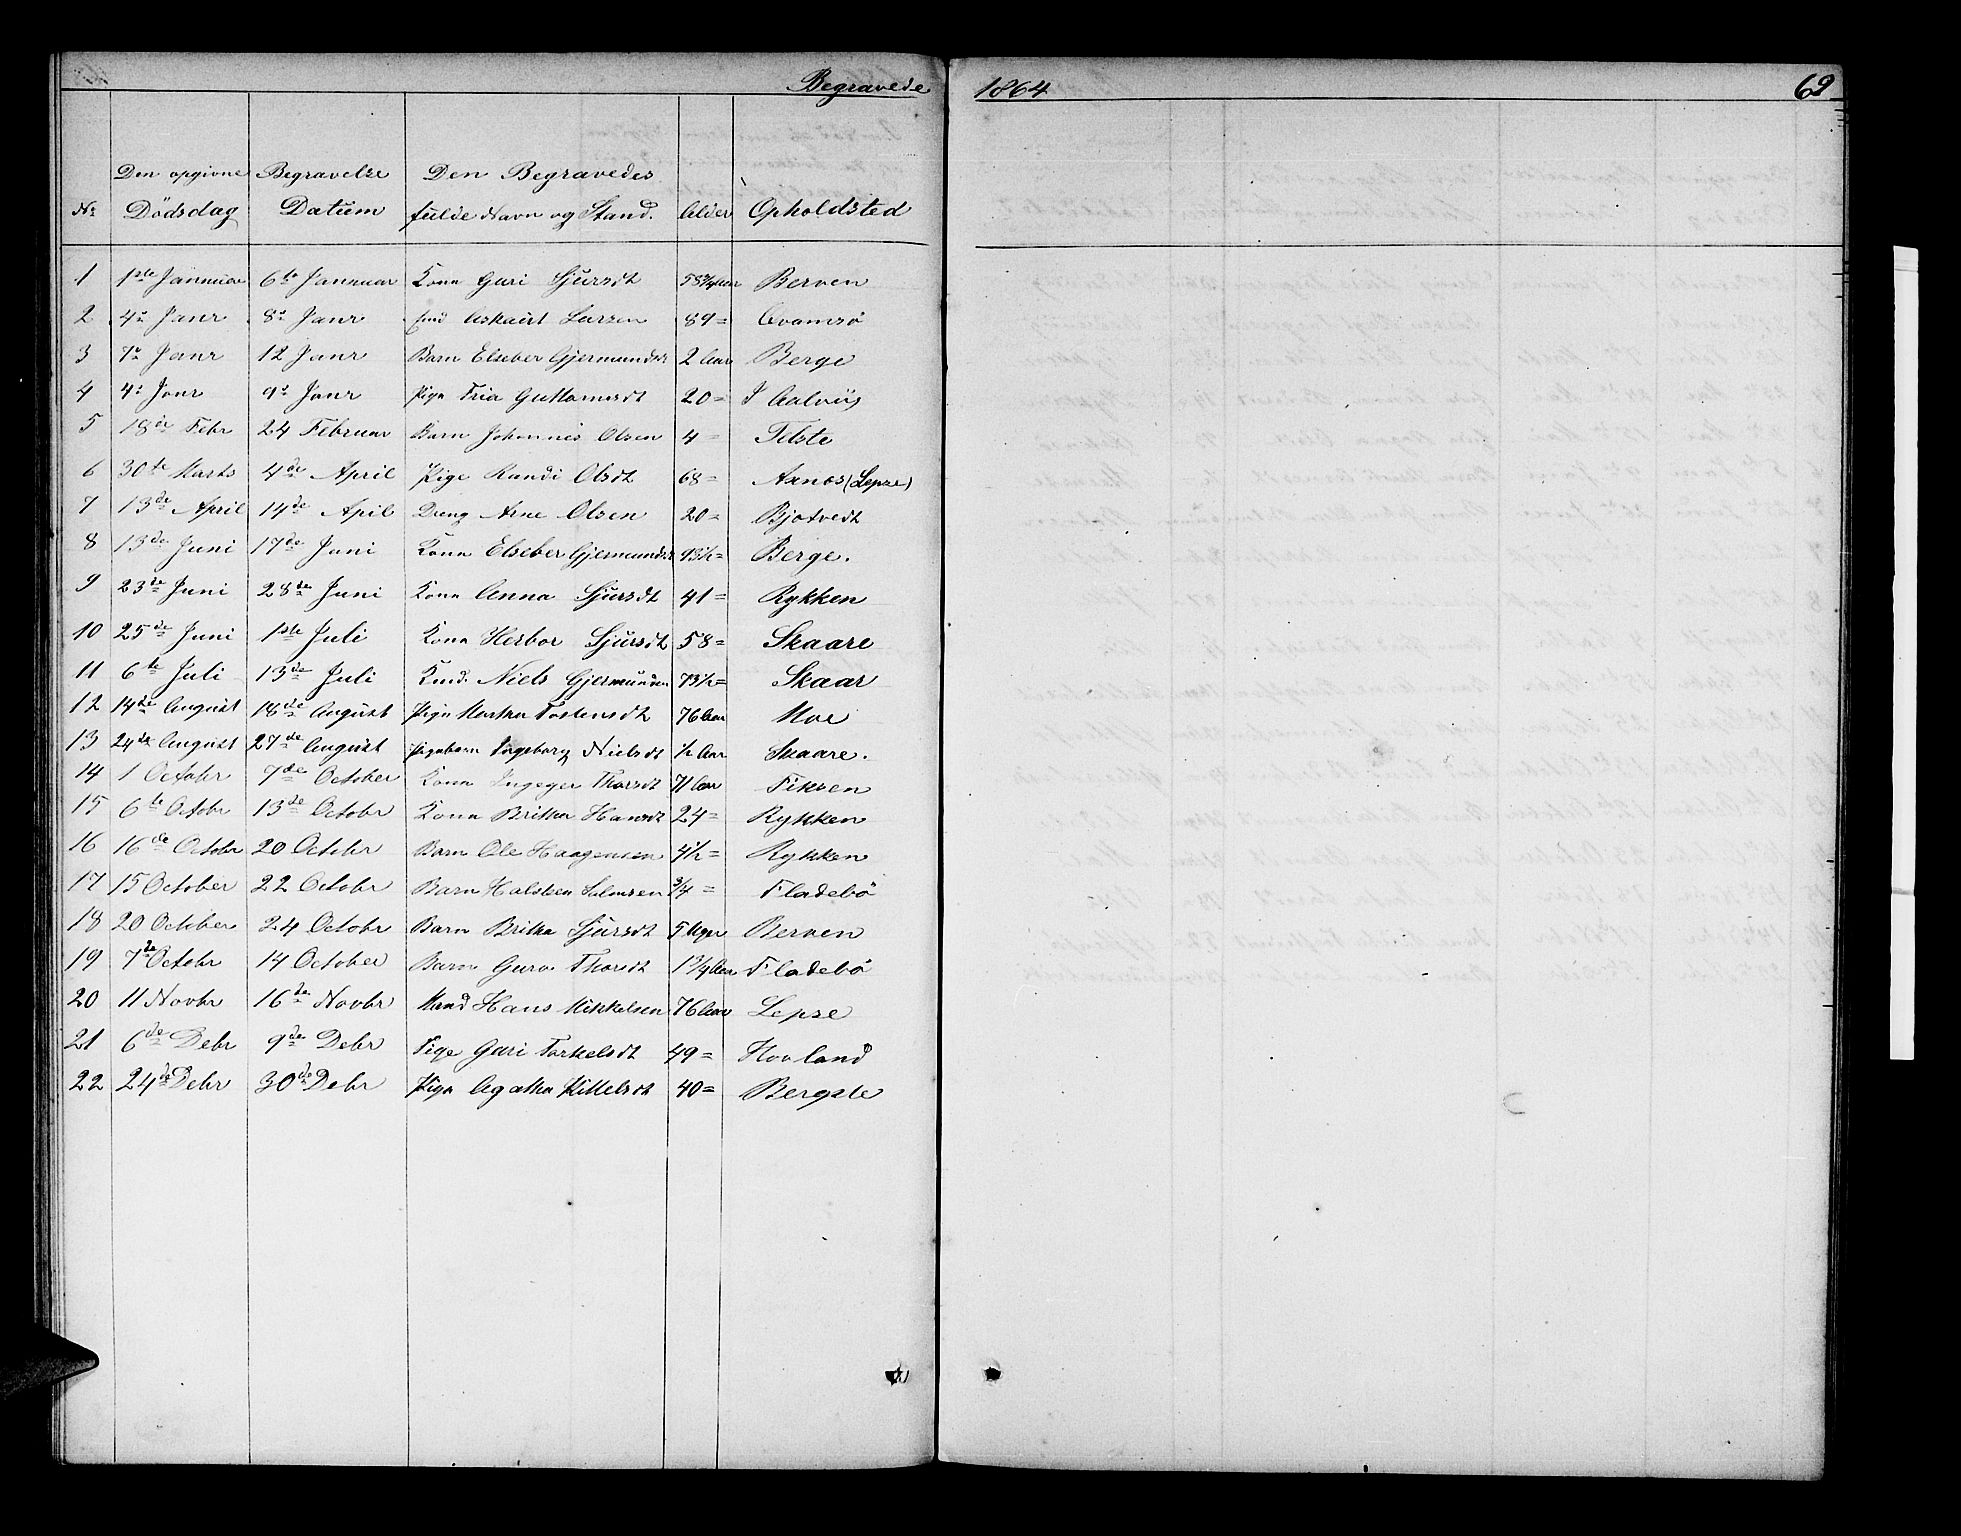 Begravede 1864 69
No Den opgivne Dödsdag Begravelse Datum Den Begravedes fulde Navn og Stand. Alder Opholdsted
1 1ste Januar 6te Januar Kona Guri Sjursdt 58 3/4 Aar Berven
2 4de Janr 8de Janr Larsen 89 = Qvamsö
3 7de Janr 12 Janr Barn Elseber Gjermundsdt 2 Aar Berge
4 4de Janr 9de Janr Pige Guttormsdt 20 = I Aalviig
5 18de Febr 24 Februar Barn Johannis Olsen 4 = Telste
6 30te Marts 4de April Pige Randi Olsdt 68 = Axnæs (Lepse)
7 13de April 14de Apil Dreng Arne Olsen 20 = Bjotvedt
8 13de Juni 17de Juni Kona Elseber Gjermundsdt 93 1/2 = Berge.
9 23de Juni 28de Juni Kona Anna Sjursdt 41 = Rykken
10 25de Juni 1ste Juli Kona Herbor Sjursdt 58 = Skaare
11 6te Juli 13de Juli Kmd. Niels Gjermunden 73 1/2 = Skaar
12 14de August 18de August Pige Martha Tostensdt 76 Aar Moe
13 24de August 27de August Pigebarn Ingeborg Nielsdt 1/2 Aar Skaare.
14 1 Octobr 7de October Kona Ingeger Thorsdt 71 Aar Fiksen
15 6te Octobr 13de Octobr Kona Britha Hansdt 24 = Rykken
16 16de Octobr 20 Octobr Barn Ole Haagensen 4 1/2 = Rykken
17 15 October 22 Octobr Barn Halsten Salmsen 3/4 = Fladebö
18 20 October 24 Octobr Barn Britha Sjursdt 5 Uger Berven
19 7de Octobr 14 October Barn Guro Thorsdt 1 3/4 Aar Fladebö
20 11 Novbr 16de Novbr Mand Hans Mikkelsen 76 Aar Lepse
21 6de Debr 9de Debr Pige Guri Torkelsdt 49 = Hovland
22 24de Debr 30de Debr Pige Agatha Kittelsdt 40 = Bergste